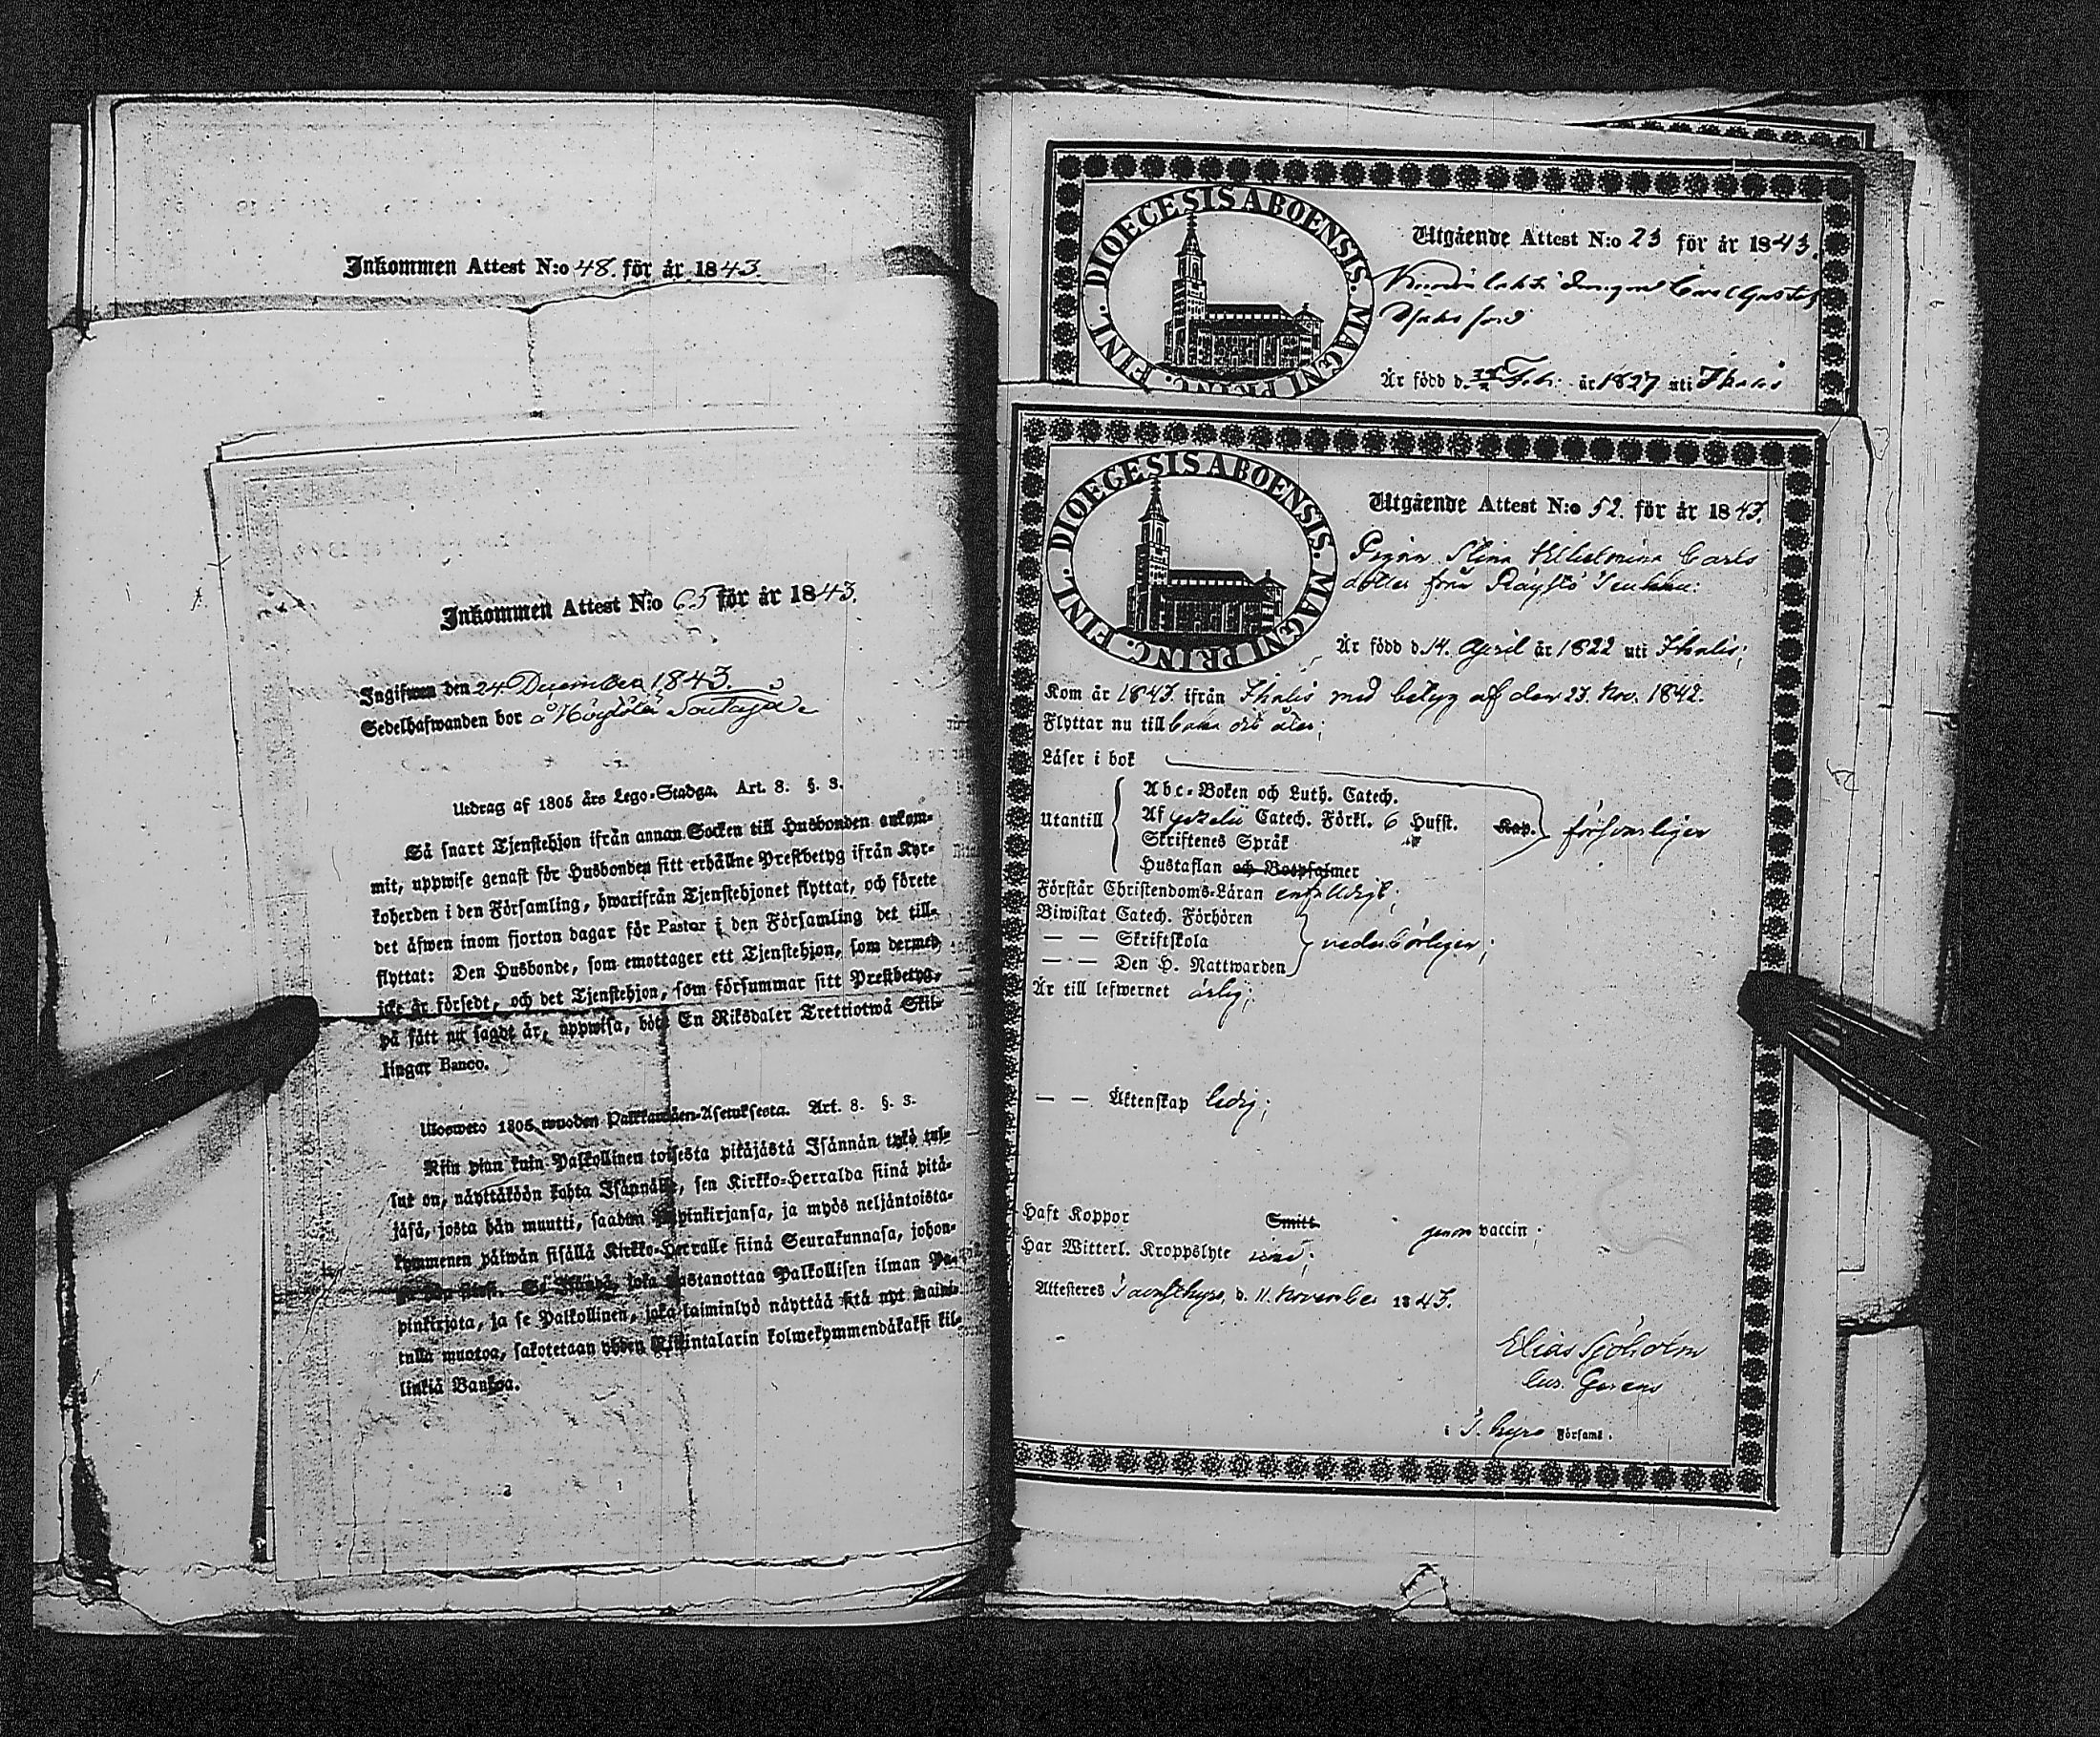 Inkommen Attest N:o 48. för år 1843.
Inkommen Attest N:o 65 för år 1843.
Ingifwen den 24 December 1843.
Sedelhafwanden bor å
Utdrag af 1805 års Lego-Stadga. Art. 8. §. 3.
Så snart Tjenstehjon ifrån annan Socken till Husbonden ankom-
mit, uppwise genast för Husbonden sitt erhållne Prestbetyg ifrån Kyr-
koherden i den Församling, hwarifrån Tjenstehjonet flyttat, och förete
det äfwen inom fjorton dagar för Pastor i den Församling det till-
flyttat: Den Husbonde, som emottager ett Tjenstehjon, som dermed
icke är försedt, och det Tjenstehjon, som försummar sitt Prestbetyg,
på sätt nu sagdt är, uppwisa, böte En Riksdaler Trettiotwå Skil-
lingar Banco.
Ulosweto 1805 wuoden Palkkawäen-Asetuksesta. Art. 8. §. 3.
Niin pian kuin Palkollinen toisesta pitäjästä Isännän tykö tul-
lut on, näyttäköön kohta Isännälle, sen Kirkko-Herralda siinä pitä-
jäsä, josta hän muutti, saadun Papinkirjansa, ja myös neljäntoista-
kymmenen päiwän sisällä Kirkko-Herralle siinä Seurakunnasa, johon-
joka wastanottaa Palkollisen ilman Pa-
pinkirjata, ja se Palkollinen, joka laiminlyö näyttää sitä nyt maini-
tulla muotoa, sakotetaan yhden Riksintalarin kolmekymmendäkaksi kil-
linkiä Bankoa.
DIOECESIS ABOENSIS. MAGNI PRINC. FINL.
Utgående Attest N:o 23 för år 1843.
Carl Gustaf
Är född d. Feb: år 1827 uti Ikalis
DIOECESIS ABOENSIS. MAGNI PRINC. FINL.
Utgående Attest N:o 52. för år 1843.
Pigan Stina Wilhelmina Carls
dotter från
Är född d. 14. April år 1822 uti Ikalis;
Kom år 1843. ifrån Ikalis med betyg af den 23. Nov. 1842.
Flyttar nu till baka
Läser i bok
Utantill
Abc-Boken och Luth. Catech.
Af Catech. Förkl. 6 Hufst. Kap.
försvarligen
Skriftenes Språk
Hustaflan och Botpsalmer
Förstår Christendoms-Läran enfaldigt;
Biwistat Catech. Förhören
— — Skriftskola
vederbörligen;
— — Den H. Nattwarden
Är till lefwernet ärlig;
— — Äktenskap ledig;
Haft Koppor Smitt. genom vaccin;
Har Witterl. Kroppslyte
Attesteres Tavastkyro, d. 11. November 1843.
Elias Sjöholm
Cur. Gerens
i T. kyro Församl.